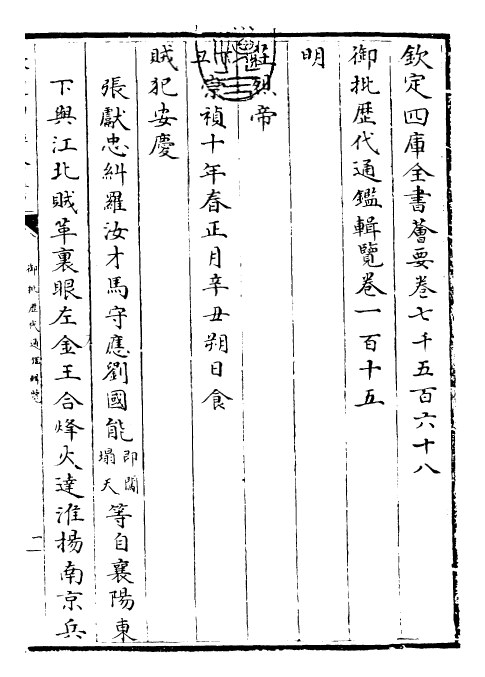 欽定四庫全書薈要卷七千五百六十八
御批歷代通鑑輯覽卷一百十五
明
莊烈帝
丑崇禎十年春正月辛丑朔日食
賊犯安慶
張獻忠糾羅汝才馬守應劉國能即闖塌天等自襄陽東
下與江北賊革裏眼左金王合烽火達淮揚南京兵
御批歷代通鑑輯覽